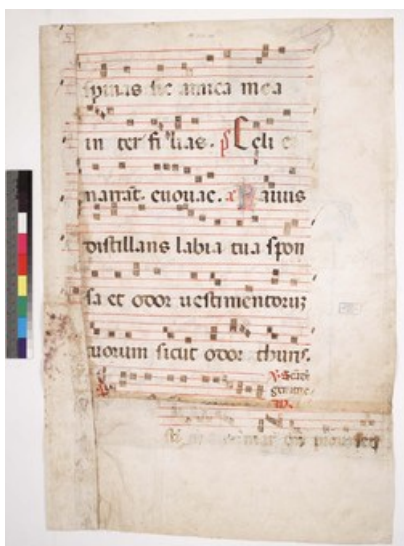 spinas sic amica mea
in ter filias. ps Celi e
narrāt. euouae. a Fauus
distillans labia tua spon
sa et odor uestimentoruꝫ
tuorum sicut odor thuris.